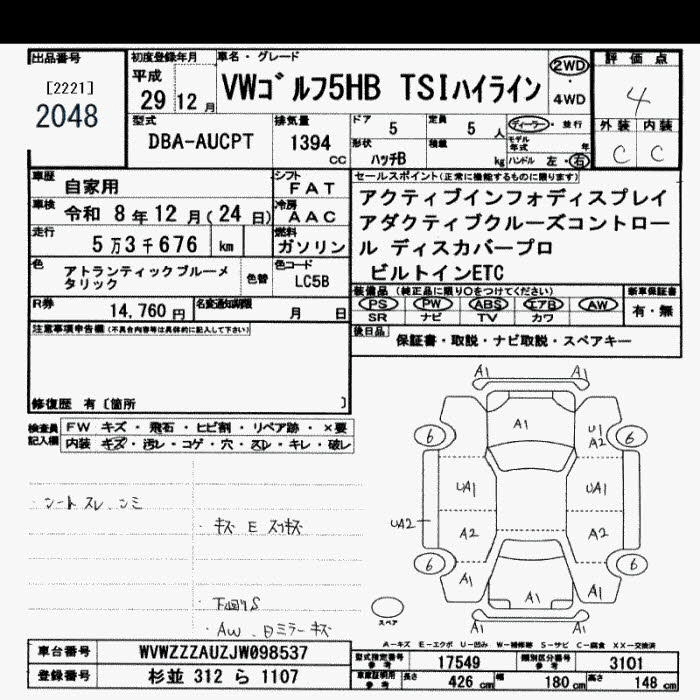 出品番号
[2221]
2048
初度登録年月
平成
29 12 月
車名・グレード
VWゴルフ5HB TSIハイライン
2WD
4WD
評価点
4
外装 内装
C C
型式
DBA-AUCPT
排気量
1394
CC
ドア 5
定員 5 人
形状 ハッチB
積載 kg
ディーラー・並行
モデル年式 年
ハンドル 左・右
車歴 自家用
シフト FAT
車検 令和 8 年 12 月 (24 日)
冷房 AAC
走行 5 万 3 千 676 km
燃料 ガソリン
色 アトランティックブルーメ
タリック
色替
色コード LC5B
R券 14,760 円
名変通知期限 月 日
セールスポイント(正常に機能するものに限ります)
アクティブインフォディスプレイ
アダクティブクルーズコントロー
ル ディスカバープロ
ビルトインETC
装備品(純正品に限り○をつけてください)
PS PW ABS エアB AW
SR ナビ TV カワ
新車保証書
有・無
後日品
保証書・取説・ナビ取説・スペアキー
注意事項申告欄(不具合内容等は具体的に記入して下さい)
修復歴 有〔箇所 〕
検査員記入欄
FW キズ・飛石・ヒビ割・リペア跡・×要
内装 キズ・汚レ・コゲ・穴・スレ・キレ・破レ
・シート スレ、シミ
・キズ E スリキズ
・下回りS
・AW、Dミラーキズ
A1 A1
A1
U1
A2
6 6
UA1 UA1
UA2
A2 A2
6 6
A1 A1
A1
A1 A1
スペア
A-キズ E-エクボ U-凹み W-補修跡 S-サビ C-腐食 XX-交換済
車台番号 WVWZZZAUZJW098537
登録番号 杉並 312 ら 1107
型式指定番号
参考 17549
類別区分番号
参考 3101
車庫証明用
参考 長さ 426 cm 幅 180 cm 高さ 148 cm